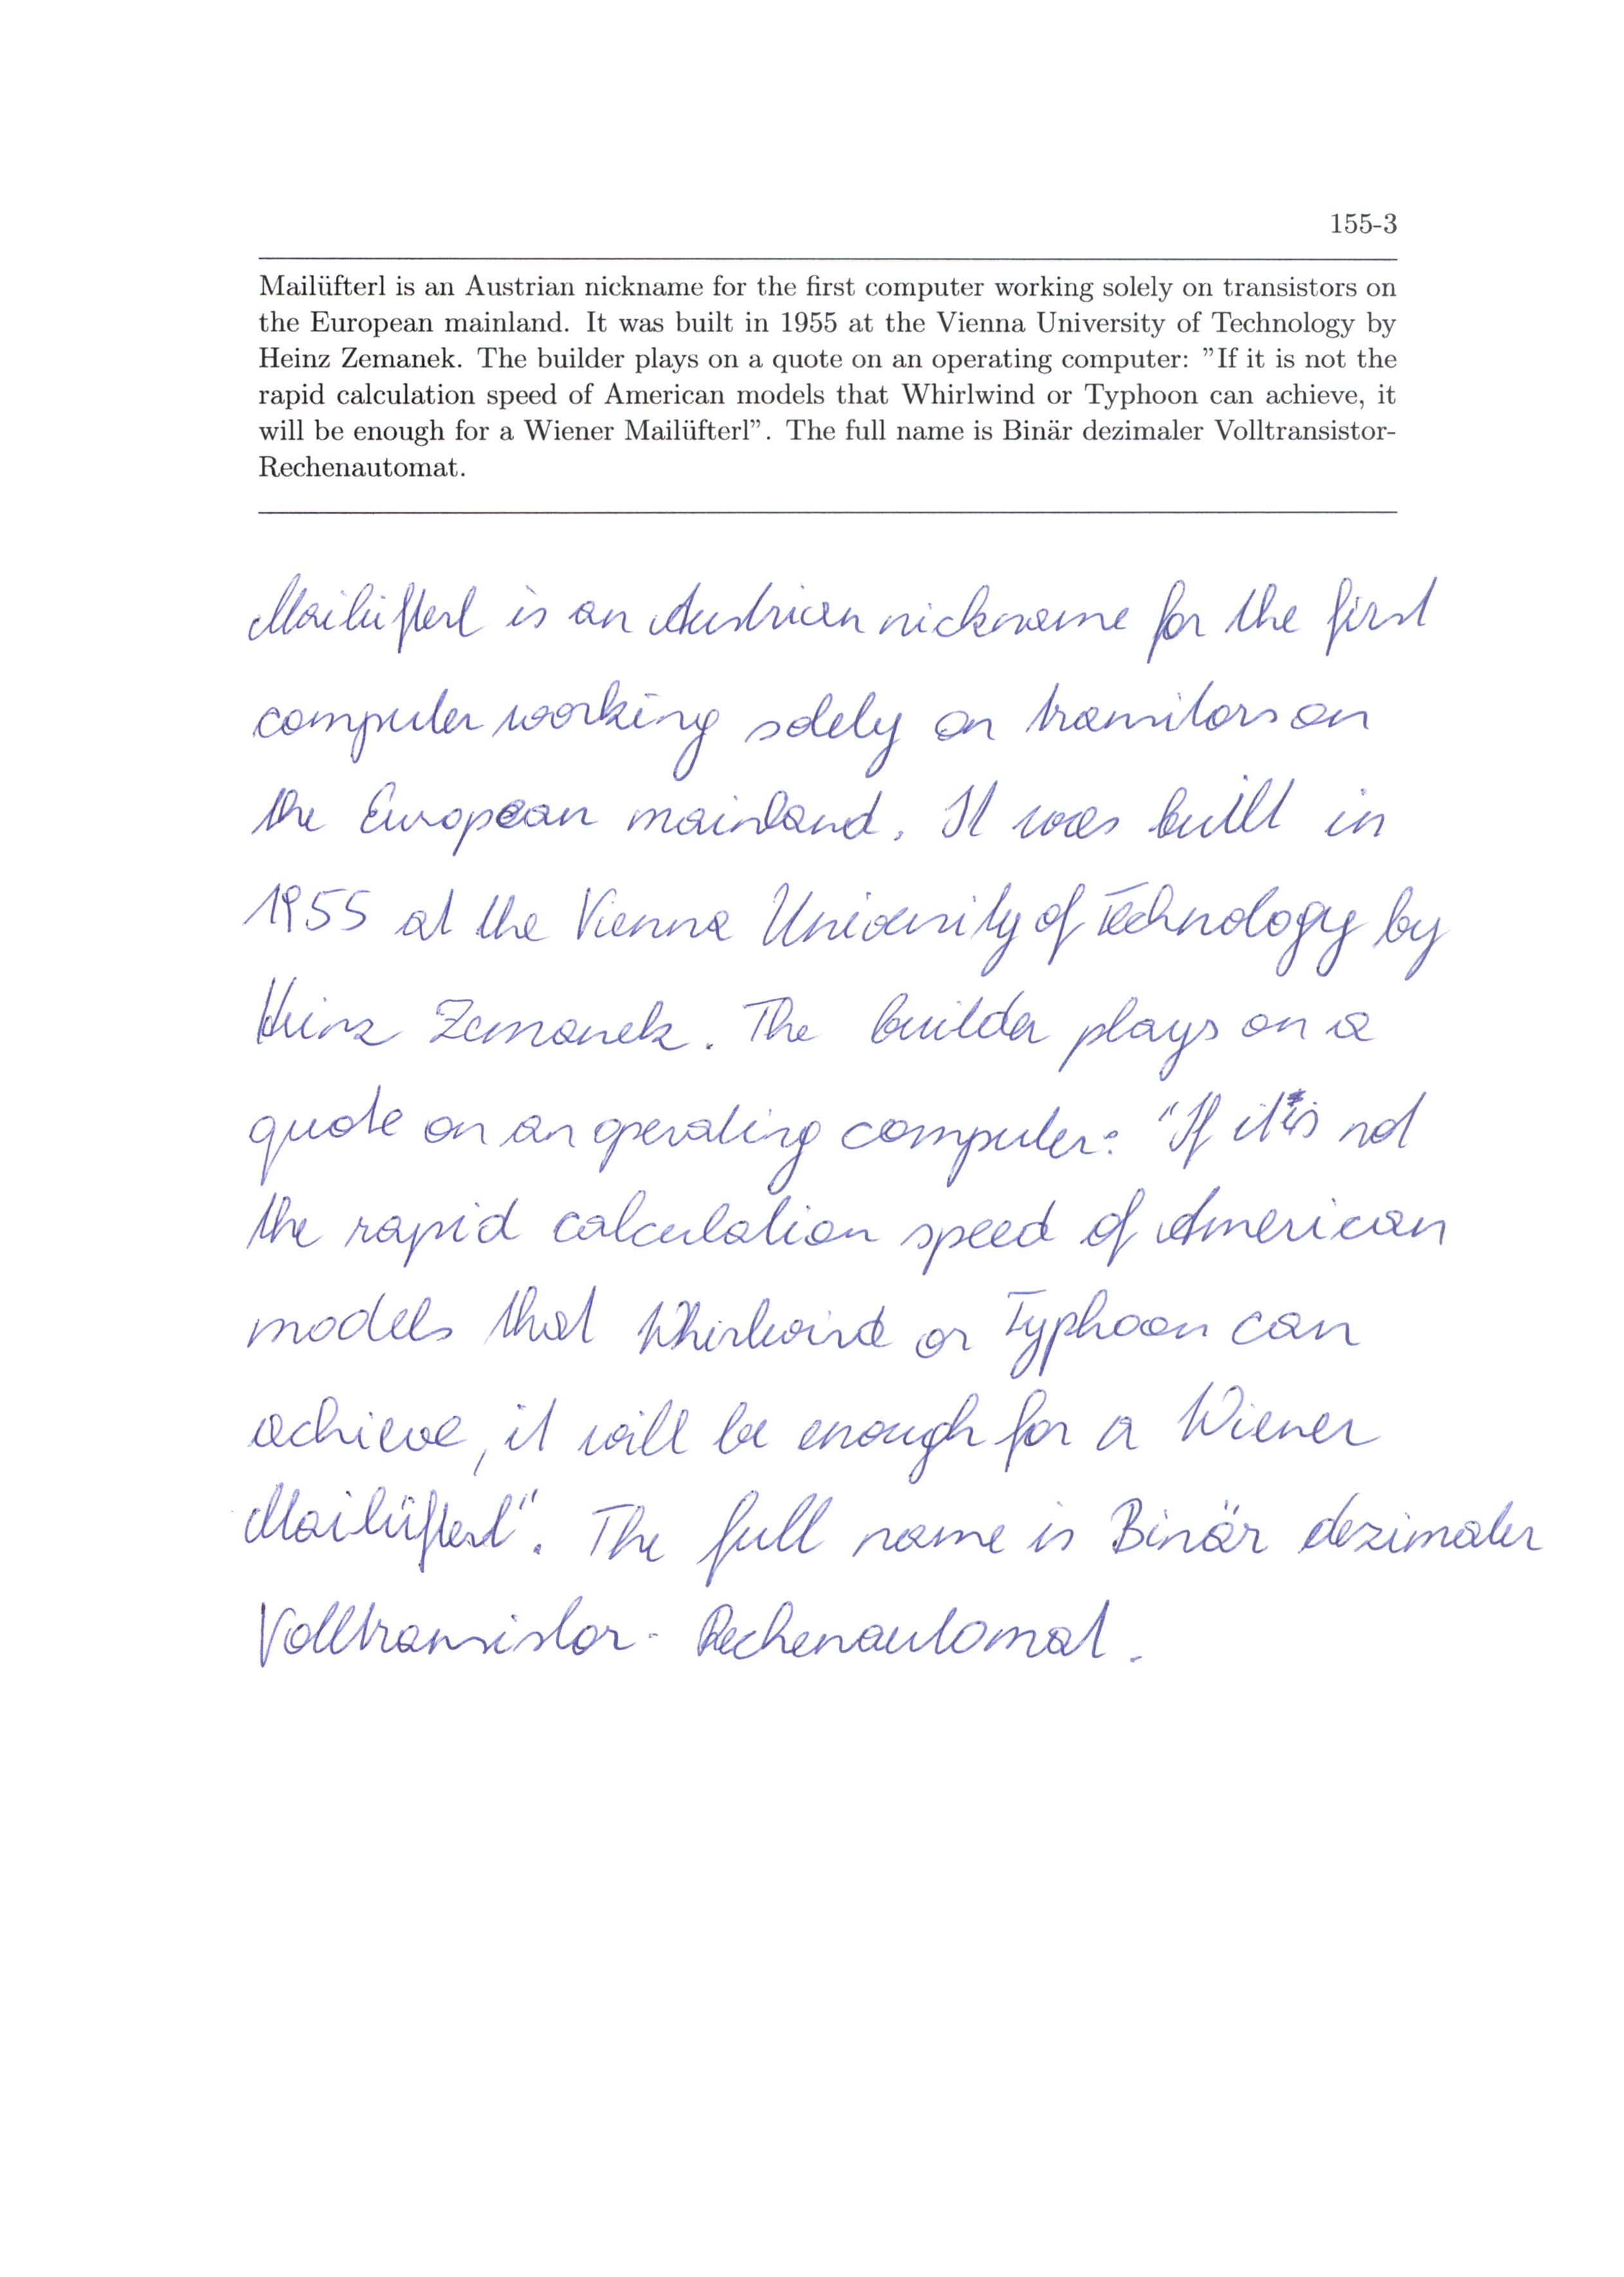 155-3
Mailüfterl is an Austrian nickname for the first computer working solely on transistors on
the European mainland. It was built in 1955 at the Vienna University of Technology by
Heinz Zemanek. The builder plays on a quote on an operating computer: ”If it is not the
rapid calculation speed of American models that Whirlwind or Typhoon can achieve, it
will be enough for a Wiener Mailüfterl”. The full name is Binär dezimaler Volltransistor-
Rechenautomat.
Mailüfterl is an Austrian nickname for the first
computer working solely on transitors on
the European mainland. It was built in
1955 at the Vienna University of Technology by
Heinz Zemanek. The builder plays on a
quote on an operating computer: "If it is not
the rapid calculation speed of American
models that Whirlwind or Typhoon can
achieve, it will be enough for a Wiener
Mailüfterl". The full name is Binär dezimaler
Volltransistor- Rechenautomat.